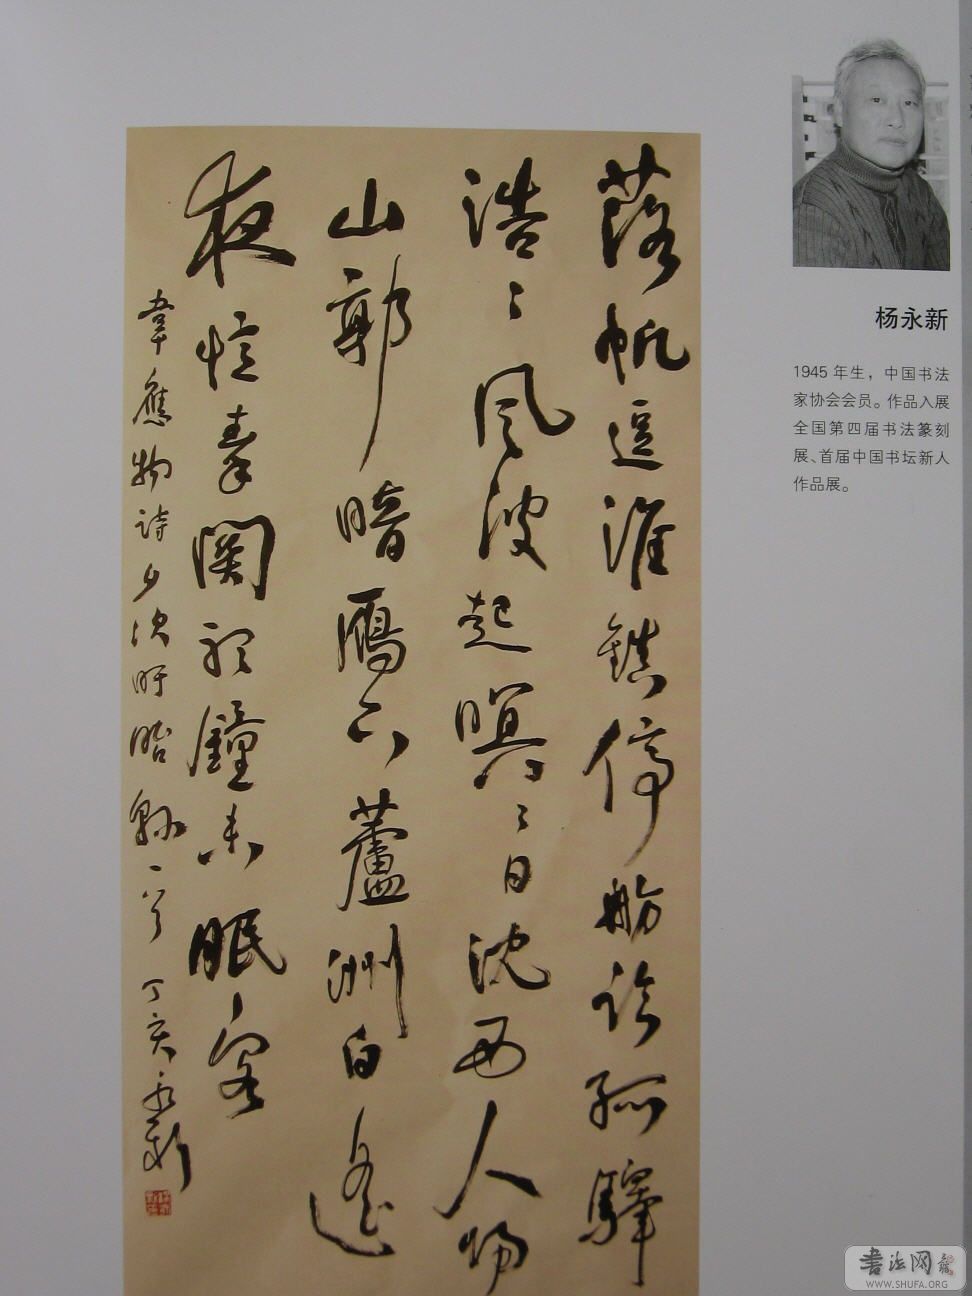 落帆逗淮鎮停舫臨孤驛
浩〻風波起暝〻日沈西人歸
山郭暗鴈下蘆洲白遙
夜憶秦關聽鐘未眠客
韋應物詩夕次盱眙縣一首 丁亥永新
杨永新
1945 年生，中国书法
家协会会员。作品入展
全国第四届书法篆刻
展、首届中国书坛新人
作品展。
书法网
WWW.SHUFA.ORG